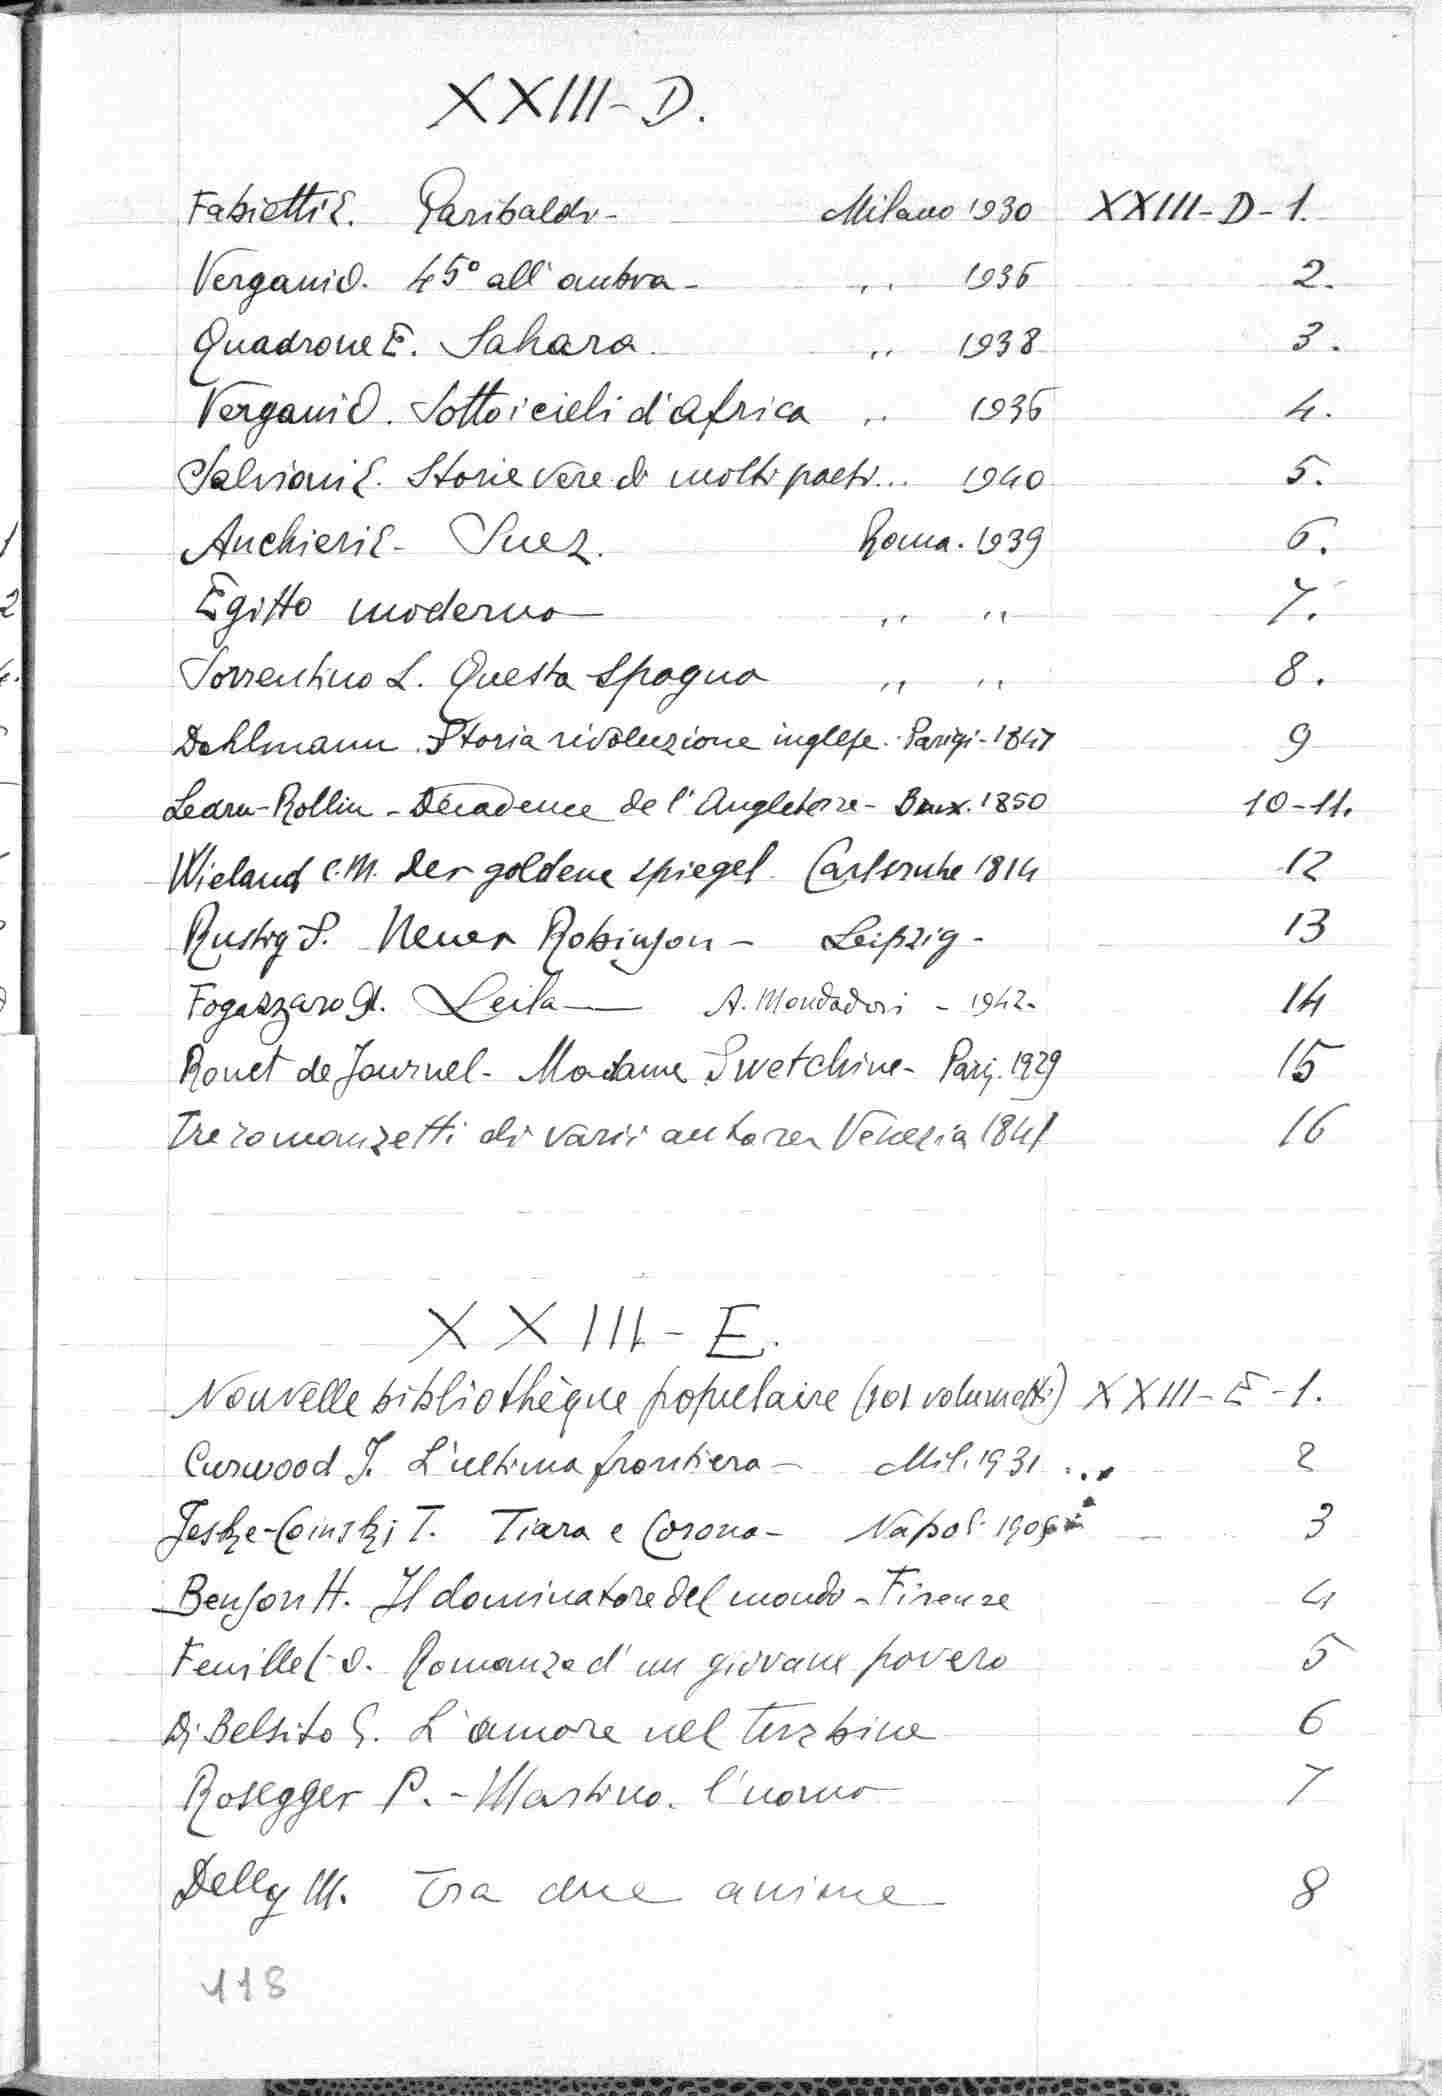 XXIII-D.
Fabietti E. Garibaldi - Milano 1930 XXIII-D-1.
Vergani O. 45° all'ombra - " 1936 2.
Quadrone E. Sahara. " 1938 3.
Vergani O. Sotto i cieli d'Africa " 1936 4.
Salviani E. Storie vere di molti paesi... 1940 5.
Anchieri E - Suez. Roma. 1939 6.
Egitto moderno " " 7.
Sorrentino L. Questa Spagna " " 8.
Dahlmann Storia rivoluzione inglese. Parigi - 1847 9
Ledru-Rollin - Décadence de l'Angleterre - Brux. 1850 10-11.
Wieland C.M. Der goldene spiegel. Carlsruhe 1814 12
Rustig S. Neuer Robinson - Leipzig - 13
Fogazzaro A. Leila - A. Mondadori - 1942 - 14
Rouet de Journel - Madame Swetchine - Parig. 1929 15
Tre romanzetti di varii autori Venezia 1841 16
XXIII-E.
Nouvelle bibliothèque populaire (101 volumetti) XXIII-E-1.
Curwood J. L'ultima frontiera - Mil. 1931 ... 2
Jeske-Coinski T. Tiara e Corona - Napoli 3
Benson H. Il dominatore del mondo - Firenze 4
Feuillet O. Romanzo d'un giovane povero 5
Di Belsito G. L'amore nel turbine 6
Rosegger P. - Martino. l'uomo 7
Delly M. Tra due anime 8
118